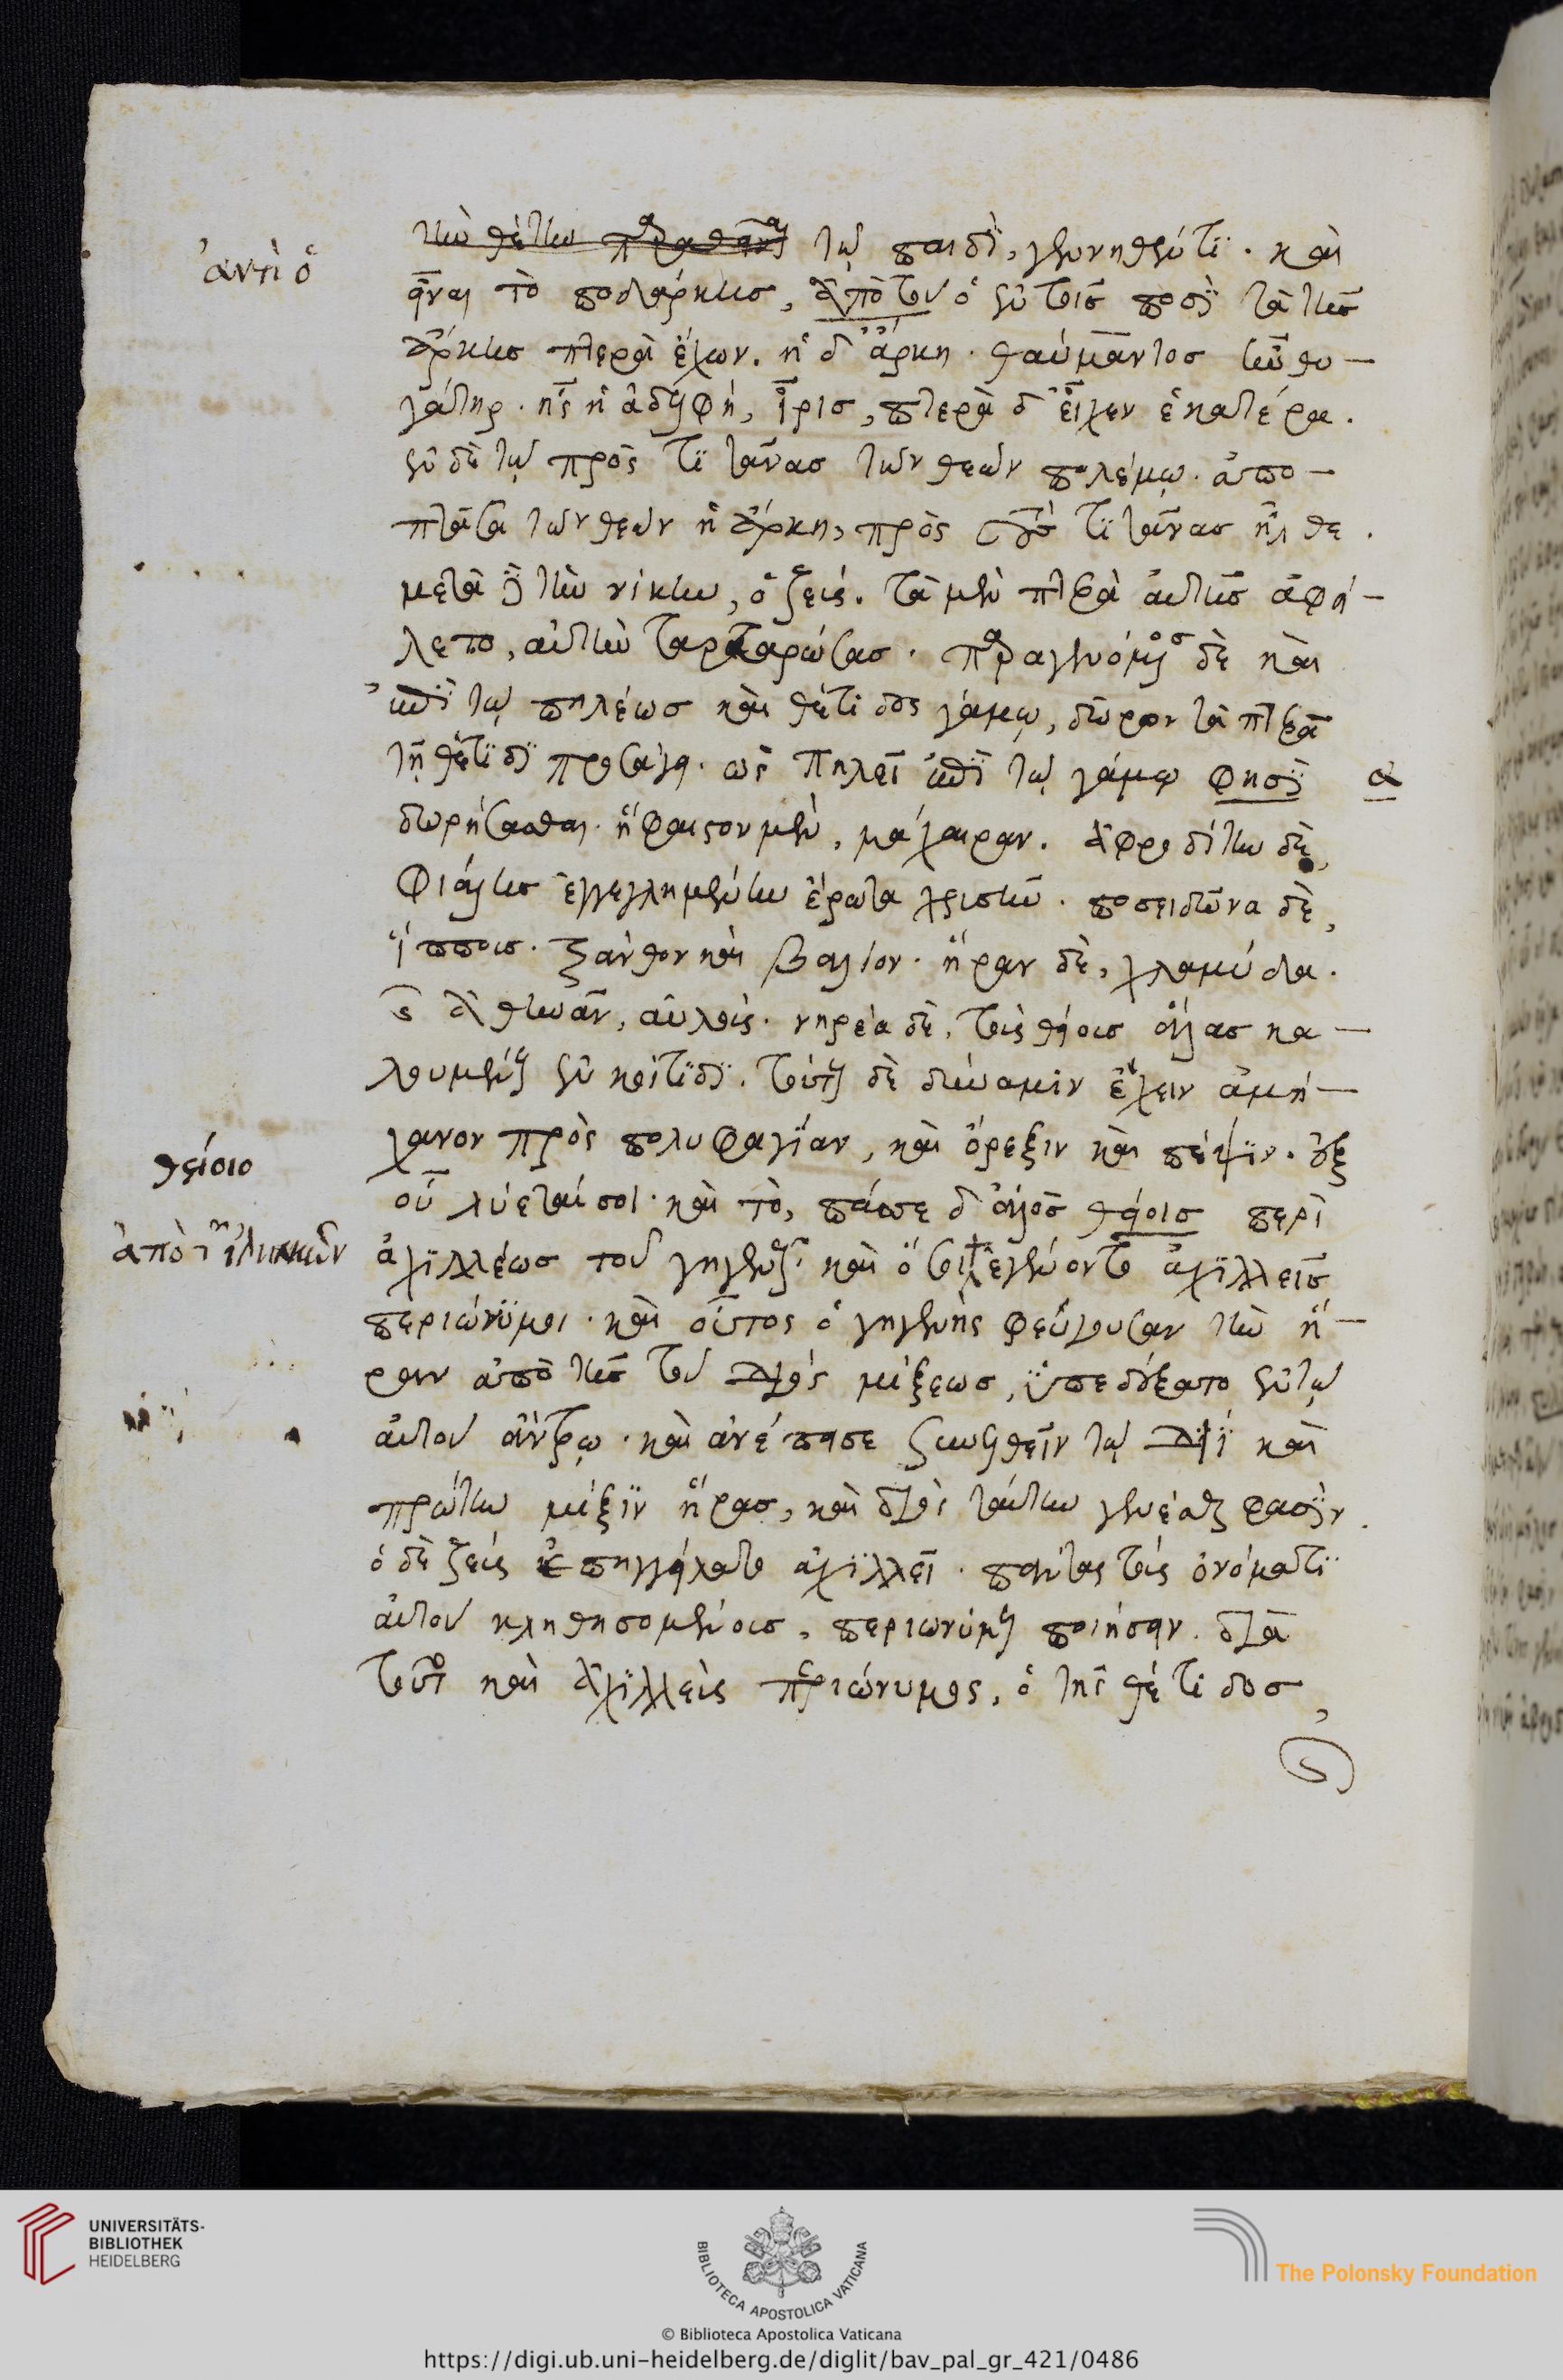 ἀντὶ ὁ
τὴν θέτιν παραθεῖναι τῷ παιδὶ, γεννηθέντι. καὶ
εἶναι τὸ ποδάρκης, ἀπὸ τοῦ ὁ ἐν τοῖς ποσὶ τὰ τῆς
ἄρκης πτερὰ ἔχων. ἡ δ' ἄρκη. θαύμαντος ἦν θυ-
γάτηρ. ἧς ἡ ἀδελφή, ἶρις, πτερὰ δ' εἶχεν ἑκατέρα.
ἐν δὲ τῷ πρὸς τιτᾶνας τῶν θεῶν πολέμῳ. ἀπο-
πτᾶσα τῶν θεῶν ἡ ἄρκη, πρὸς τοὺς τιτᾶνας ἦλθε.
μετὰ δὲ τὴν νίκην, ὁ ζεύς. τὰ μὲν πτερὰ αὐτῆς ἀφεί-
λετο, αὐτὴν ταρταρώσας. παραγενόμενος δὲ καὶ
ἐπὶ τῷ πηλέως καὶ θέτιδος γάμῳ, δῶρον τὰ πτερὰ
τῇ θέτιδι προσάγει. ὡς πηλεῖ ἐπὶ τῷ γάμῳ φησὶ
δωρήσασθαι. ἥφαιστον μὲν, μάχαιραν. ἀφροδίτην δὲ,
φιάλην ἐγγεγλημένην ἔρωτα χρυσῆν. ποσειδῶνα δὲ,
ἵππους. ξάνθον καὶ βαλίον. ἥραν δὲ, χλαμύδα.
ἀθηνᾶν, αὐλούς. νηρέα δὲ, τοὺς θείους ἅλας κα-
λουμένους ἐν κοιτίδι. τούτους δὲ δύναμιν ἔχειν ἀμή-
χανον πρὸς πολυφαγίαν, καὶ ὄρεξιν καὶ πέψιν. ἐξ
θείοιο
οὗ λύεταί σοι. καὶ τὸ, πάσσε δ' ἁλὸς θείοιο περὶ
ἀπὸ τῶν ἰλιακῶν
ἀχιλλέως τοῦ γηγενοῦς. καὶ ὅσοι ἐγένοντο ἀχιλλεῖς
περιώνυμοι. καὶ οὗτος ὁ γηγενὴς φεύγουσαν τὴν ἥ-
ραν ἀπὸ τῆς τοῦ διὸς μίξεως, ὑπεδέξατο ἐν τῷ
αὐτοῦ ἄντρῳ. καὶ ἀνέπεισε συνελθεῖν τῷ διῒ καὶ
πρώτην μίξιν ἥρας, καὶ διὸς ταύτην γενέσθαι φασίν.
ὁ δὲ ζεὺς ἐπηγγείλατο ἀχιλλεῖ. πάντας τοὺς ὀνόματι
αὐτοῦ κληθησομένους, περιωνύμους ποιήσειν. διὰ
τοῦτο καὶ ἀχιλλεὺς περιώνυμος, ὁ τῆς θέτιδος
UNIVERSITÄTS-
BIBLIOTHEK
HEIDELBERG
BIBLIOTECA APOSTOLICA VATICANA
The Polonsky Foundation
© Biblioteca Apostolica Vaticana
https://digi.ub.uni-heidelberg.de/diglit/bav_pal_gr_421/0486